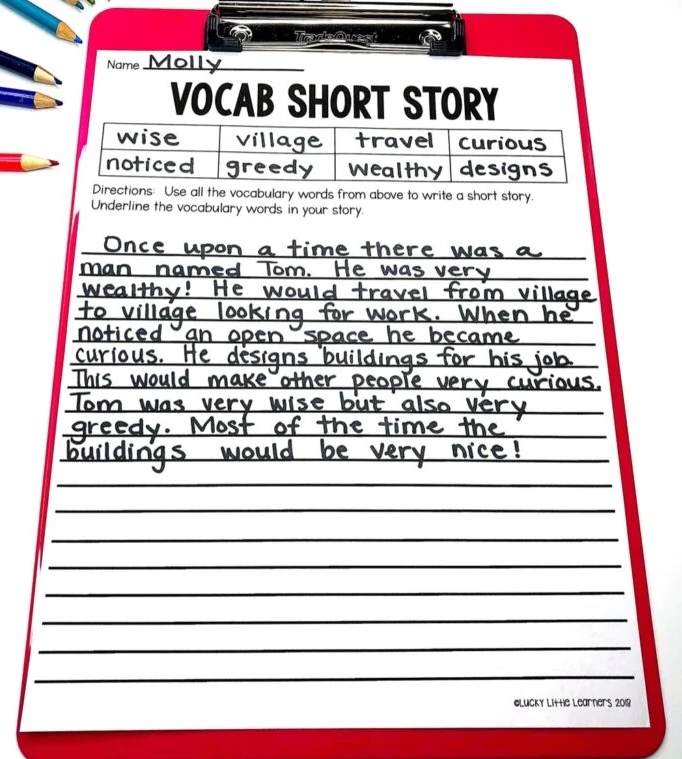 TradeQuest
Name Molly
VOCAB SHORT STORY
wise village travel curious
noticed greedy wealthy designs
Directions: Use all the vocabulary words from above to write a short story.
Underline the vocabulary words in your story.
Once upon a time there was a
man named Tom. He was very
wealthy! He would travel from village
to village looking for work. When he
noticed an open space he became
curious. He designs buildings for his job.
This would make other people very curious.
Tom was very wise but also very
greedy. Most of the time the
buildings would be very nice!
©Lucky Little Learners 2018